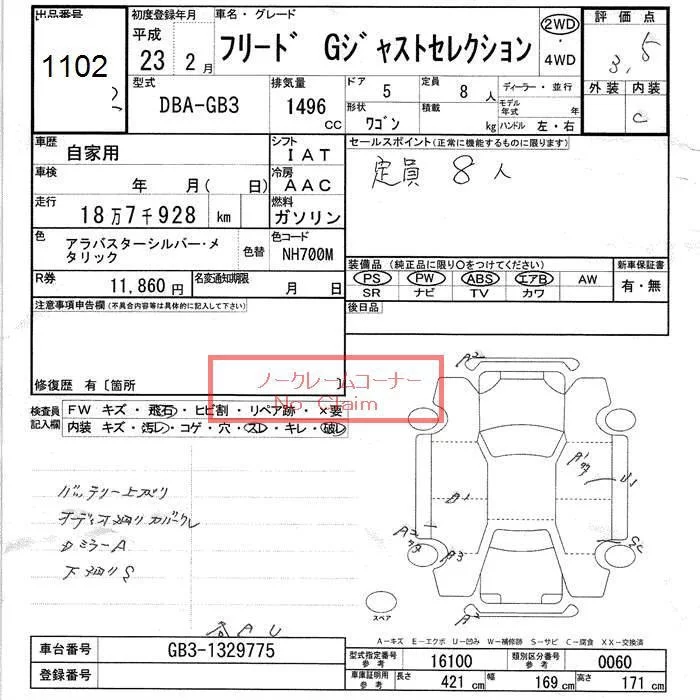 出品番号 初度登録年月 車名・グレード 評価点
1102 平成 23 年 2 月 フリード Gジャストセレクション 2WD ・ 4WD 3.5
型式 排気量 ドア 定員 ディーラー・並行 外装 内装
DBA-GB3 1496 CC 5 8 人 C
形状 積載 モデル年式 年
ワゴン kg ハンドル 左・右
車歴 自家用 シフト IAT セールスポイント(正常に機能するものに限ります)
車検 年 月( 日) 冷房 AAC 定員 8人
走行 18万7千928 km 燃料 ガソリン
色 アラバスターシルバー・メタリック 色替 色コード NH700M
装備品(純正品に限り○をつけてください) 新車保証書
PS PW ABS エアB AW 有・無
SR ナビ TV カワ
R券 11,860円 名変通知期限 月 日
後日品
注意事項申告欄(不具合内容等は具体的に記入して下さい)
修復歴 有〔箇所 〕
ノークレームコーナー
No Claim
検査員記入欄 FW キズ・飛石・ヒビ割・リペア跡・×要
内装 キズ・汚レ・コゲ・穴・スレ・キレ・破レ
バッテリー上ガリ
オーディオ廻りカバークレ
DミラーA
下廻りS
A2
A1
U1
B1
A2
A3
A2
スペア
A-キズ E-エクボ U-凹み W-補修跡 S-サビ C-腐食 XX-交換済
車台番号 GB3-1329775
登録番号
型式指定番号 参考 16100 類別区分番号 参考 0060
車庫証明用 参考 長さ 421 cm 幅 169 cm 高さ 171 cm